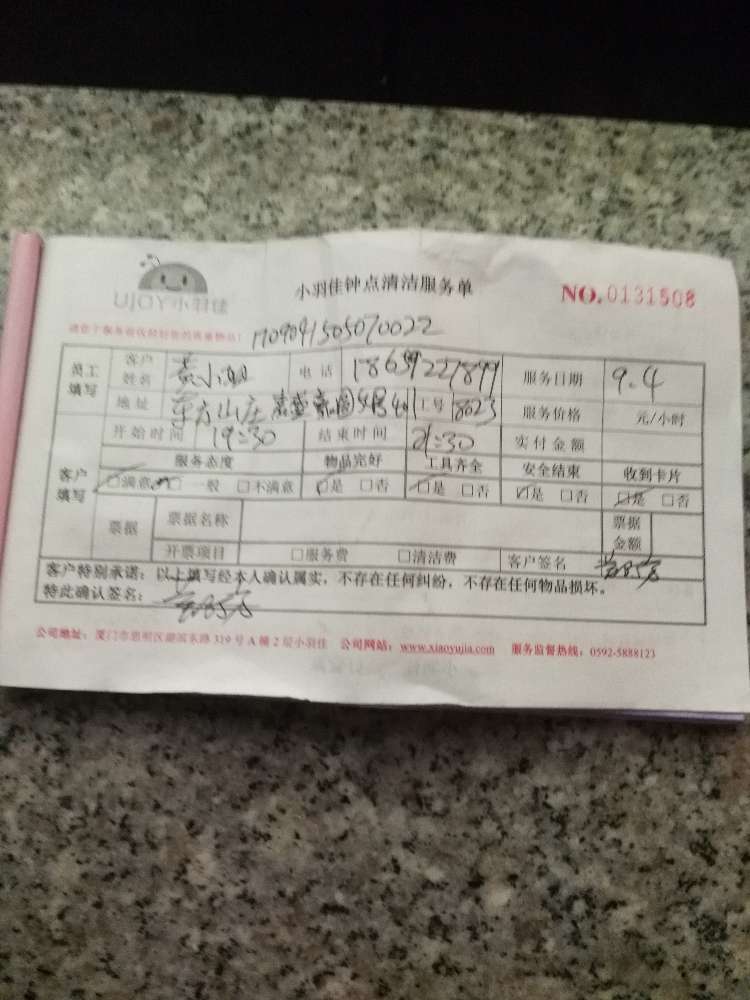 UJOY小羽佳
小羽佳钟点清洁服务单
NO.0131508
1709041505070022
员工填写 客户姓名 黄小姐 电话 服务日期 9.4
地址 东方山庄 工号 18623 服务价格 元/小时
开始时间 19:30 结束时间 21:30 实付金额
客户填写 服务态度 物品完好 工具齐全 安全结束 收到卡片
□满意 □一般 □不满意 □是 □否 □是 □否 □是 □否 □是 □否
票据 票据名称 票据金额
开票项目 □服务费 □清洁费 客户签名
客户特别承诺：以上填写经本人确认属实，不存在任何纠纷，不存在任何物品损坏。
特此确认签名：
公司地址：厦门市思明区湖滨东路319号A幢2层小羽佳 公司网站：www.xiaoyujia.com 服务监督热线：0592-5888123